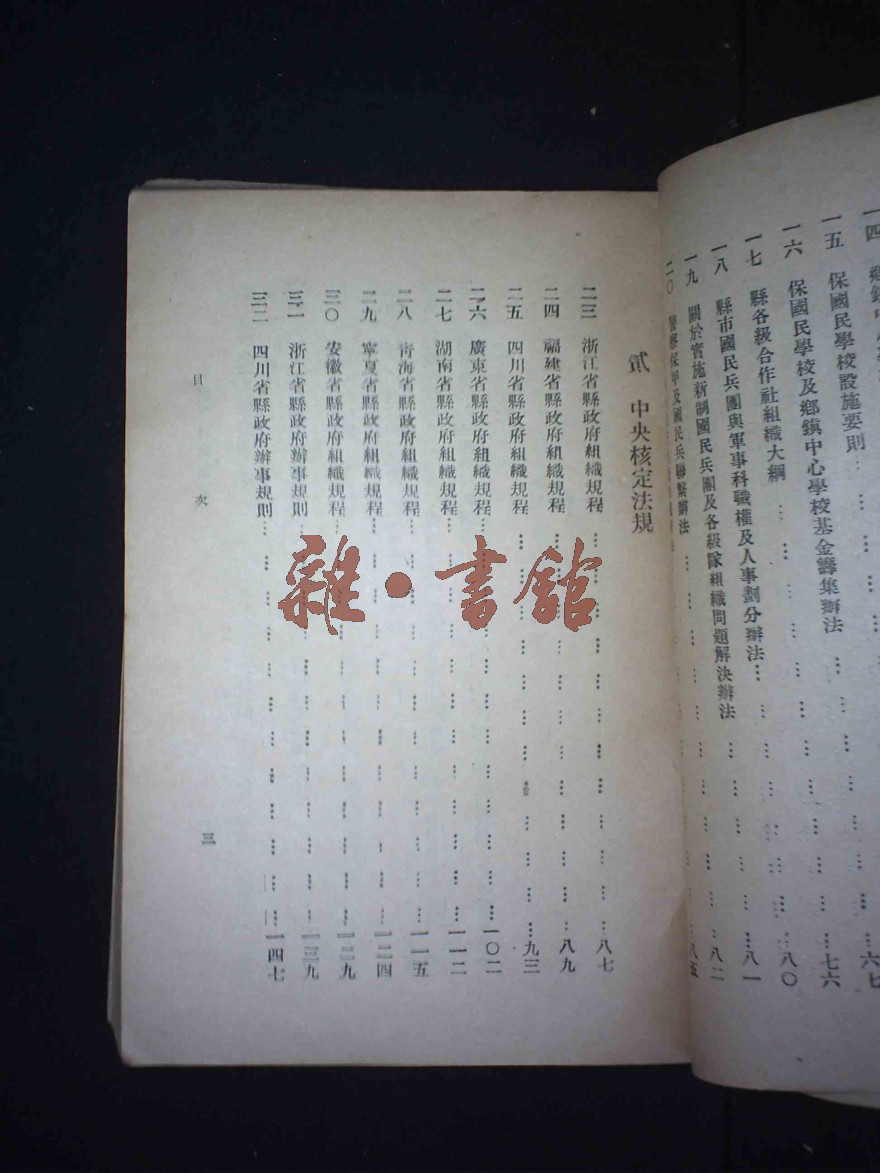 一四
一五 保國民學校設施要則……七六
一六 保國民學校及鄉鎮中心學校基金籌集辦法……八〇
一七 縣各級合作社組織大綱……八一
一八 縣市國民兵團與軍事科職權及人事劃分辦法……八二
一九 關於實施新制國民兵團及各級隊組織問題解決辦法……八五
二〇 警察保甲及國民兵聯繫辦法
貳 中央核定法規
二三 浙江省縣政府組織規程……八七
二四 福建省縣政府組織規程……八九
二五 四川省縣政府組織規程……九三
二六 廣東省縣政府組織規程……一〇二
二七 湖南省縣政府組織規程……一一二
二八 青海省縣政府組織規程……一一五
二九 寧夏省縣政府組織規程……一二四
三〇 安徽省縣政府組織規程……一二九
三一 浙江省縣政府辦事規則……一三九
三二 四川省縣政府辦事規則……一四七
目次 三
雜·書館